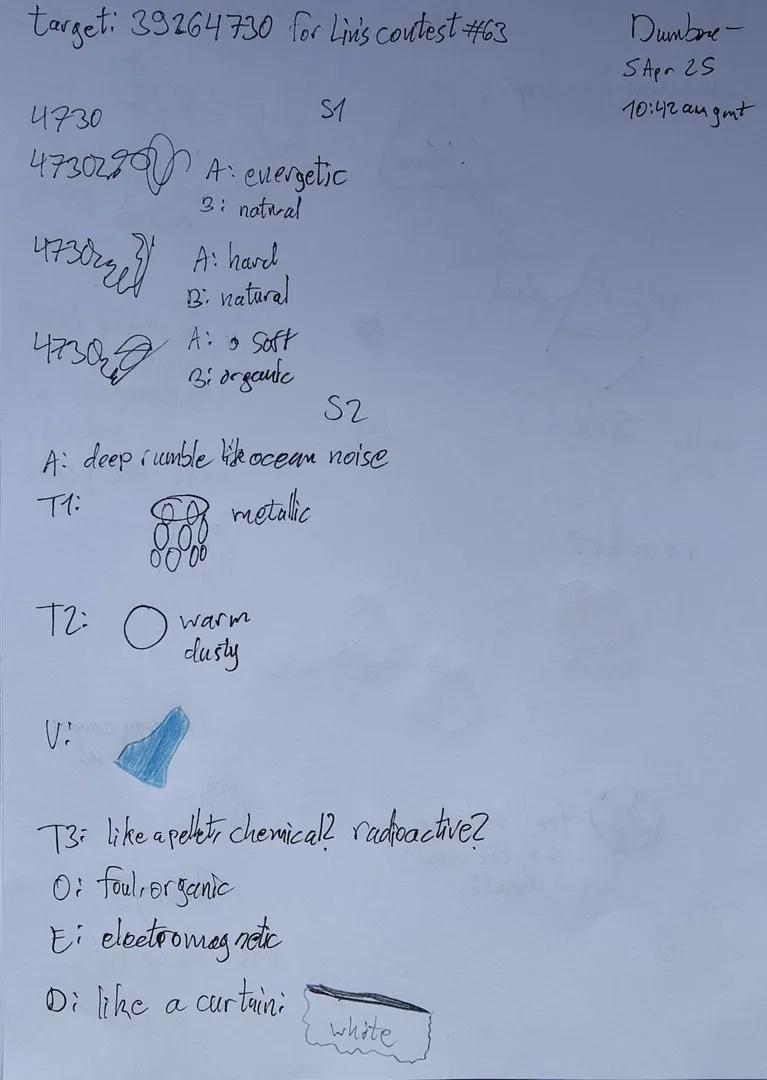 target: 39264730 for Lin's contest #63
Dumbore-
5 Apr 25
10:42 am gmt
4730
S1
4730
A: energetic
B: natural
4730
A: hard
B: natural
4730
A: soft
B: organic
S2
A: deep rumble like ocean noise
T1: metallic
T2: warm
dusty
V:
T3: like a pellet, chemical? radioactive?
O: foul, organic
E: electromagnetic
D: like a curtain:
white